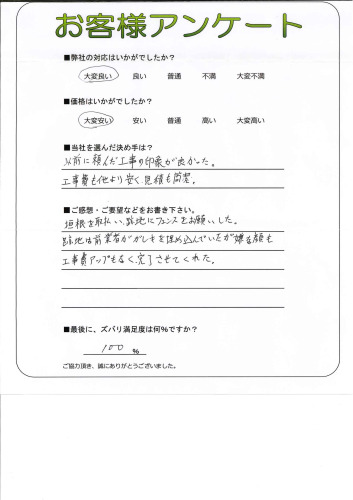 お客様アンケート
■弊社の対応はいかがでしたか？
大変良い 良い 普通 不満 大変不満
■価格はいかがでしたか？
大変安い 安い 普通 高い 大変高い
■当社を選んだ決め手は？
以前に頼んだ工事の印象が良かった。
工事費も他より安く、見積も簡潔。
■ご感想・ご要望などをお書き下さい。
垣根を取払い、跡地にフェンスをお願いした。
跡地は前業者がガレキを埋め込んでいたが嫌な顔も
工事費アップもなく、完了させてくれた。
■最後に、ズバリ満足度は何％ですか？
100 ％
ご協力頂き、誠にありがとうございました。